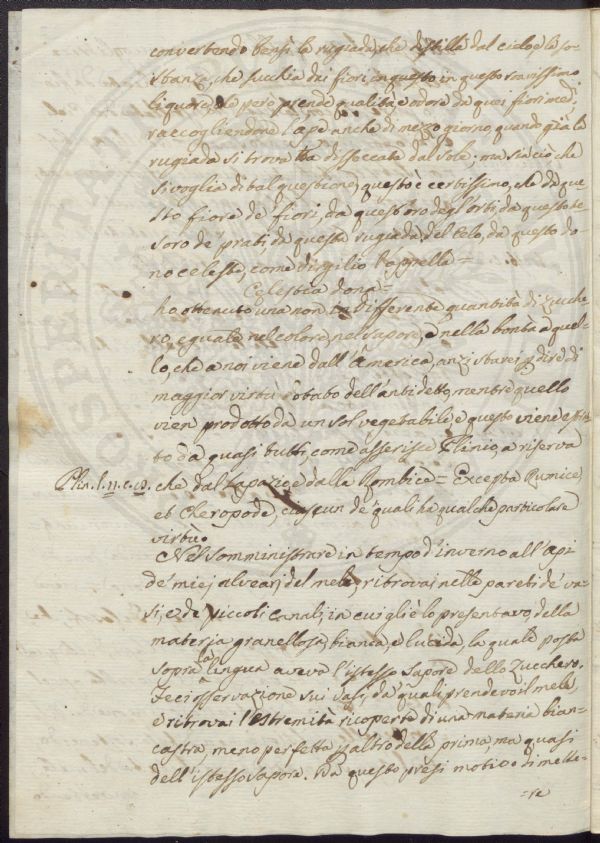 convertendo bensì la rugiada, che distilla dal cielo, e la so-
stanza, che succhia dai fiori in questo in questo soavissimo
liquore, che però prende qualità, e odore da quei fiori med.i
raccogliendone l'ape anche di mezzo giorno, quando già la
rugiada si trova disseccata dal sole: ma sia ciò, che
si voglia di tal questione, questo è certissimo, che da que-
sto fiore de' fiori, da quest'oro degl'orti, da questo te-
soro de' prati, da questa rugiada del Celo, da questo do
no celeste, come Virgilio l'appella =
Celestia dona =
ho ottenuto una non indifferente quantità di zucche
ro, eguale nel colore, nel sapore, e nella bontà a quel-
lo, che a noi viene dall'America, anzi starei p dire di
maggior virtù dotato dell'antidetto, mentre quello
vien prodotto da un sol vegetabile, e questo viene estrat-
to da quasi tutti, come asserisce Plinio, a riserva
Plin. l. 11. c. 8. che dal Lapazio, e dalla Rombice = Excepta Rumice,
et Cleropode, ciascun de' quali ha qualche particolare
virtù.
Nel somministrare in tempo d'inverno all'api
de' miei alveari del mele, ritrovai nelle pareti de' va-
si, e de' piccoli canali, in cui gliè lo presentavo, della
materia granellosa, bianca, e lucida, la quale posta
sopra la lingua aveva l'istesso sapore dello zucchero.
Feci osservazione sui vasi, da' quali prendevo il mele,
e ritrovai l'estremità ricoperta di una materia bian-
castra, meno perfetta p altro della prima, ma quasi
dell'istesso sapore. Da questo presi motivo di mette-
=re